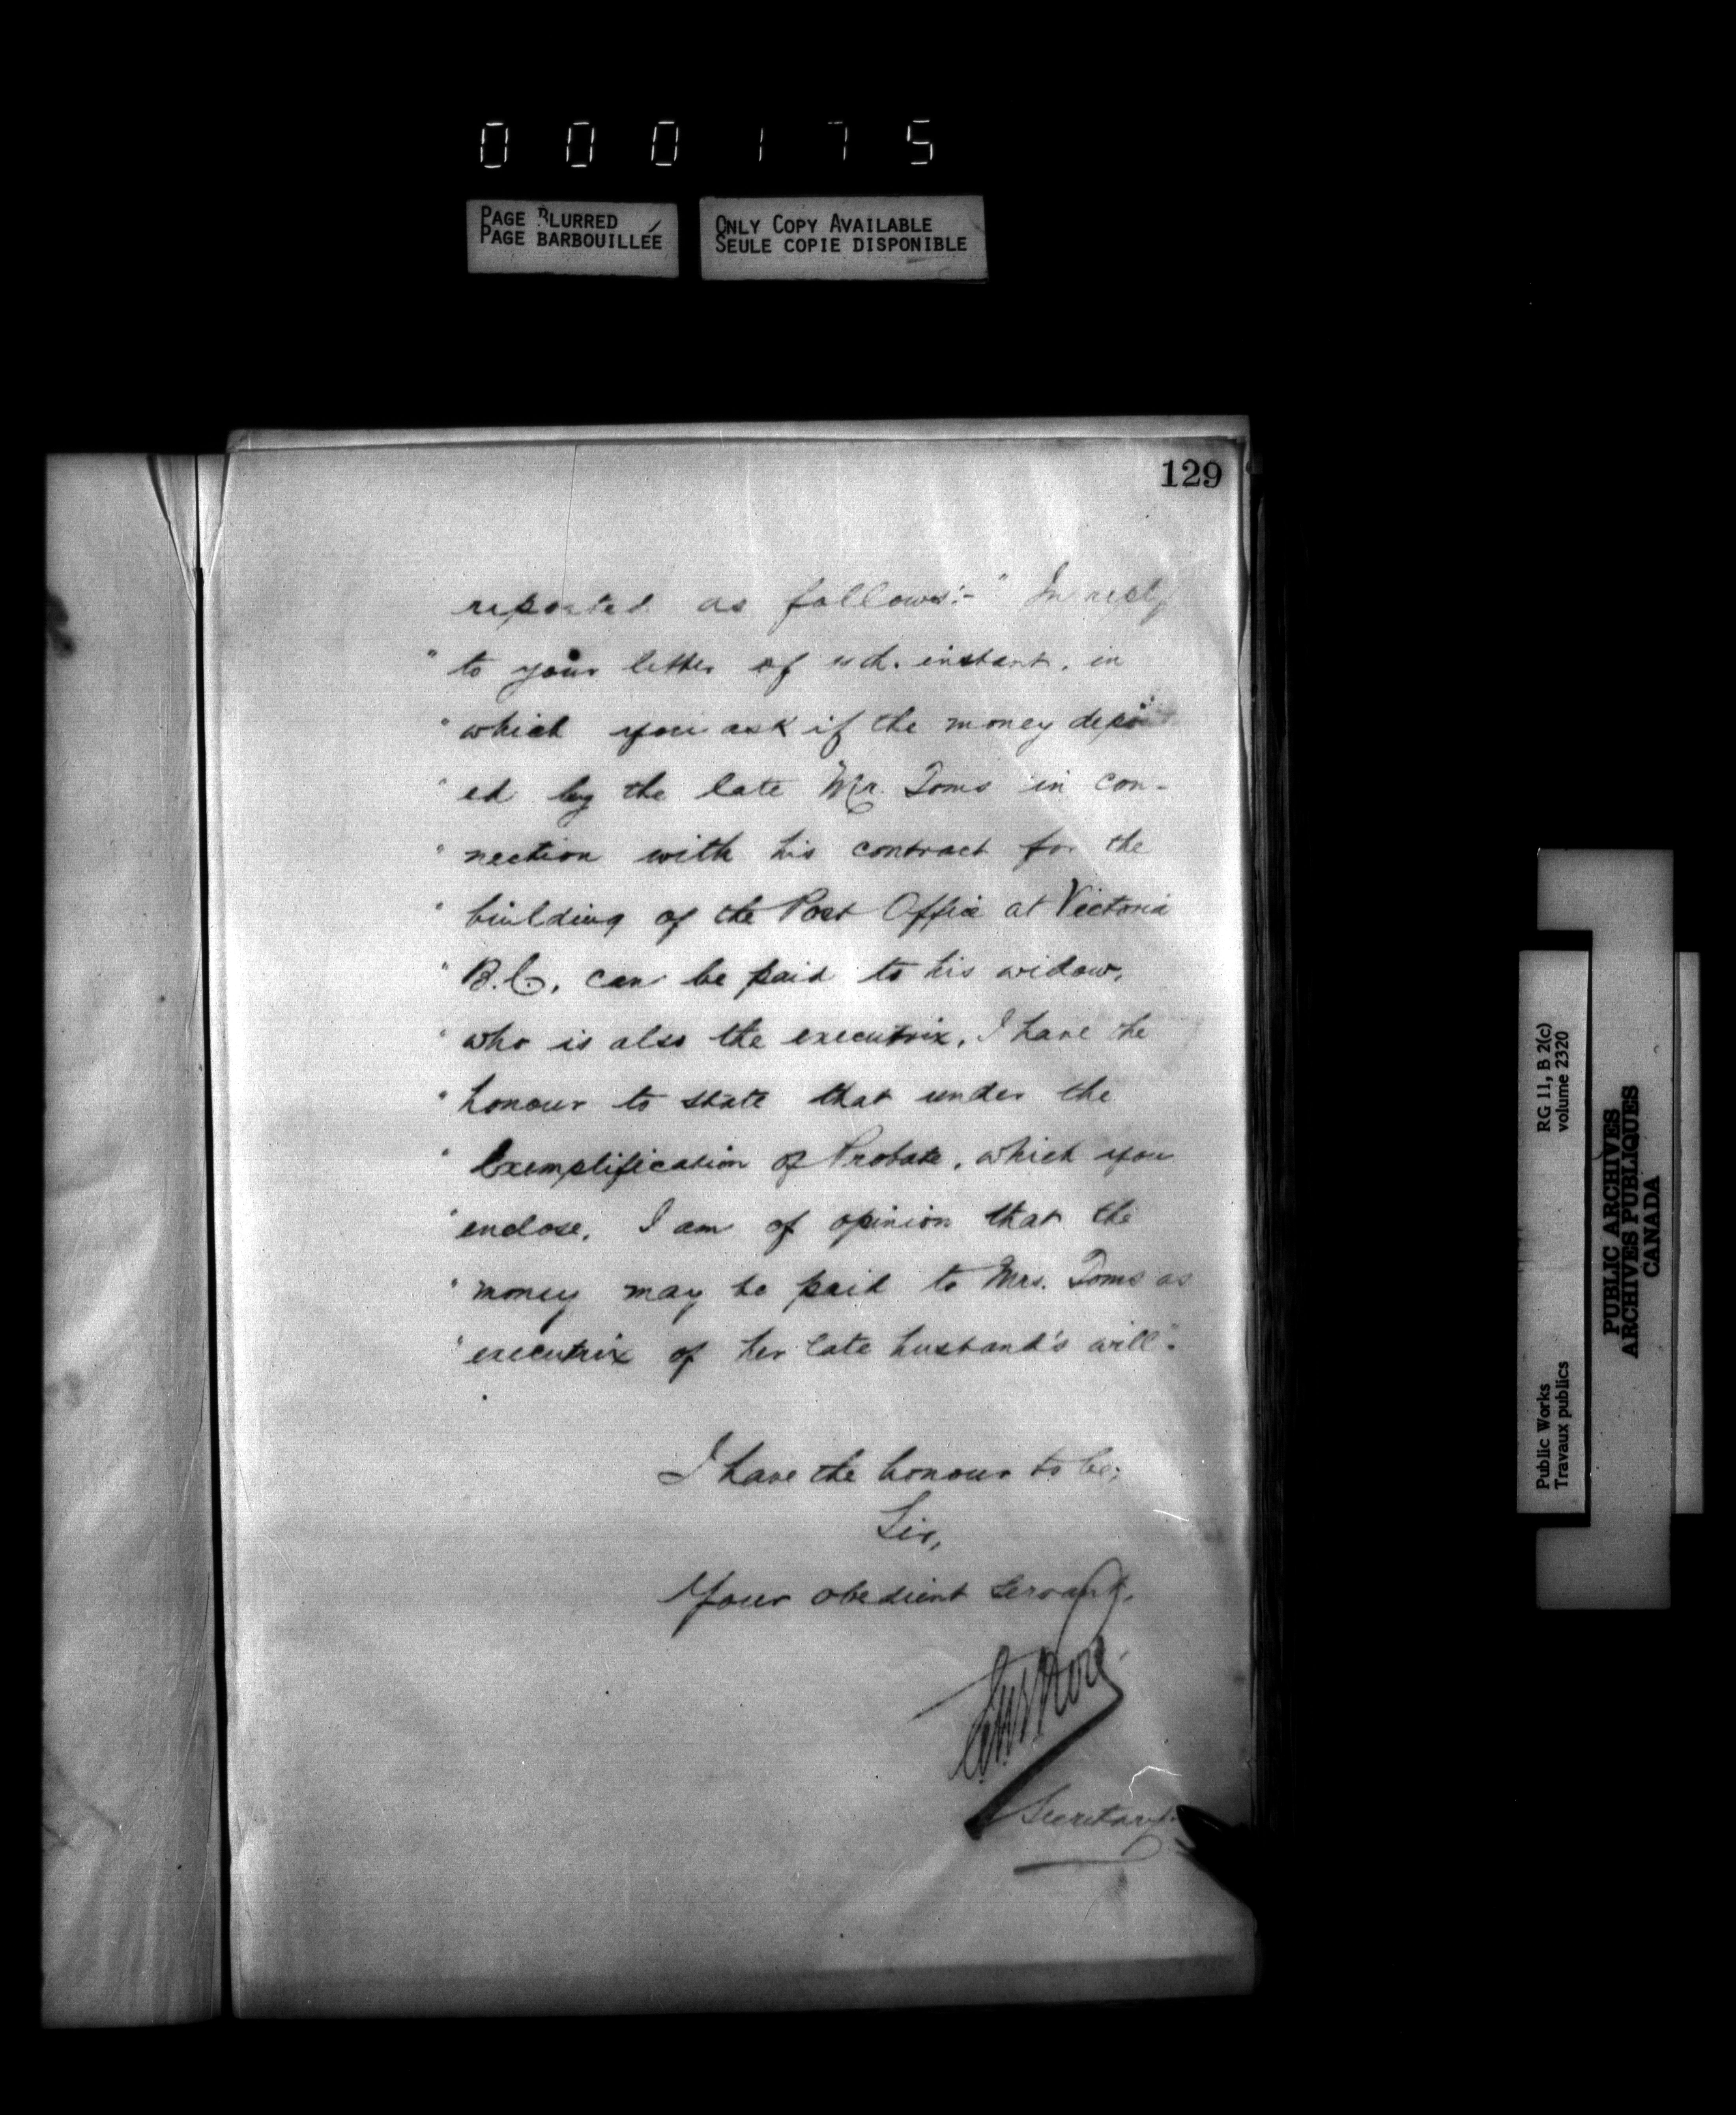 000175
PAGE BLURRED
PAGE BARBOUILLÉE
ONLY COPY AVAILABLE
SEULE COPIE DISPONIBLE
129
reported as follows:- " In reply
" to your letter of instant, in
" which you ask if the money
" ed by the late Mr. Toms in con-
" nection with his contract for the
" building of the Post Office at Victoria
" B.C. can be paid to his widow,
" who is also the executrix, I have the
" honour to state that under the
" Exemplification of Probate, which you
" enclose, I am of opinion that the
" money may be paid to Mrs. Toms as
" executrix of her late husband's will".
I have the honour to be,
Sir,
Your obedient servant,
Secretary.
Public Works
Travaux publics
RG 11, B 2(c)
volume 2320
PUBLIC ARCHIVES
ARCHIVES PUBLIQUES
CANADA